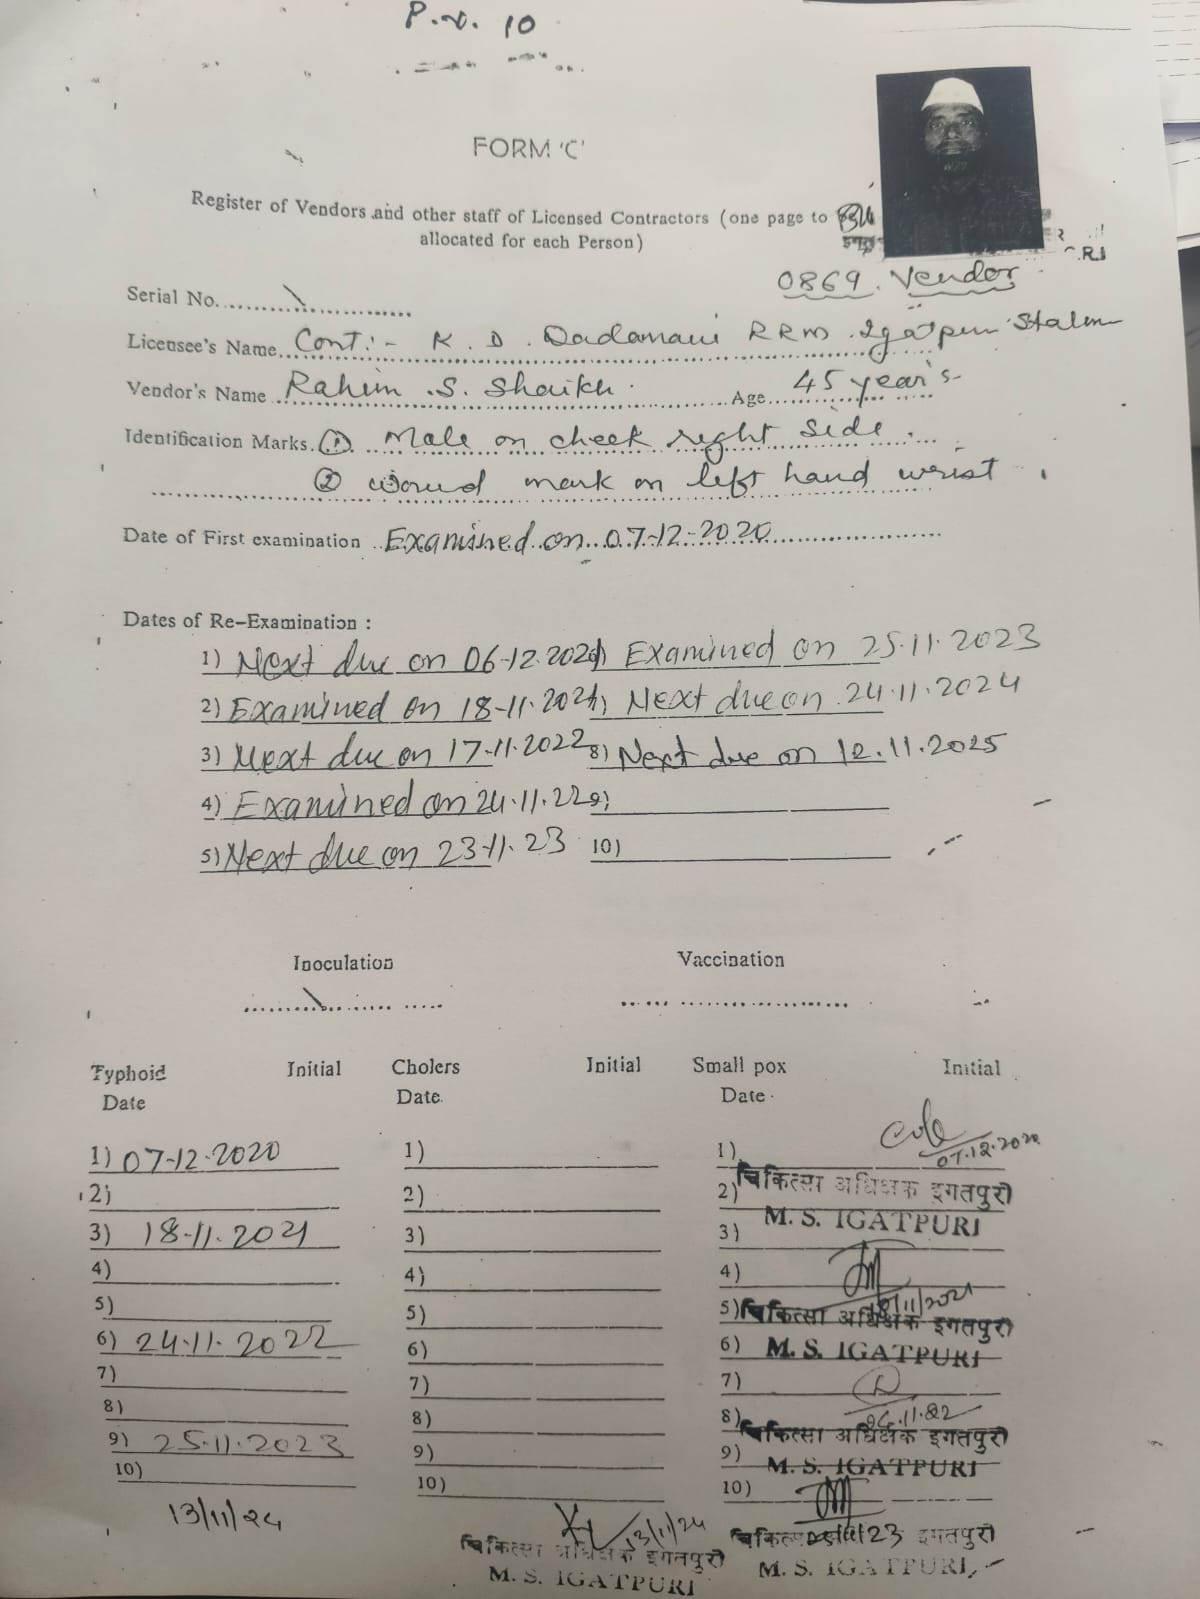 P.N. 10
FORM 'C'
Register of Vendors and other staff of Licensed Contractors (one page to
allocated for each Person)
0869. Vendor
Serial No.
Licensee's Name Cont:- K. D. Dadamani RRM Igatpuri
Vendor's Name Rahim .S. Shaikh. Age 45 year's
Identification Marks. ① Male on cheek right side.
② wound mark on left hand wrist
Date of First examination Examined on 07-12-2020
Dates of Re-Examination :
1) Next due on 06-12-2021 Examined on 25.11.2023
2) Examined on 18-11-2021 Next due on 24.11.2024
3) Next due on 17-11-2022 8) Next due on 12.11.2025
4) Examined on 24.11.22 9)
5) Next due on 23.11.23 10)
Inoculation Vaccination
Typhoid Initial Cholers Initial Small pox Initial
Date Date. Date
1) 07-12-2020 1) 1) 07.12.2020
2) 2) 2) चिकित्सा अधिक्षक इगतपुरी
3) 18-11-2021 3) 3) M. S. IGATPURI
4) 4) 4)
5) 5) 5) 18/11/2021 चिकित्सा अधिक्षक इगतपुरी
6) 24.11.2022 6) 6) M. S. IGATPURI
7) 7) 7)
8) 8) 8) 24.11.22 चिकित्सा अधिक्षक इगतपुरी
9) 25.11.2023 9) 9) M. S. IGATPURI
10) 10) 10)
13/11/24 13/11/24 25/11/23
चिकित्सा अधिक्षक इगतपुरी इगतपुरी
M. S. IGATPURI M. S. IGATPURI